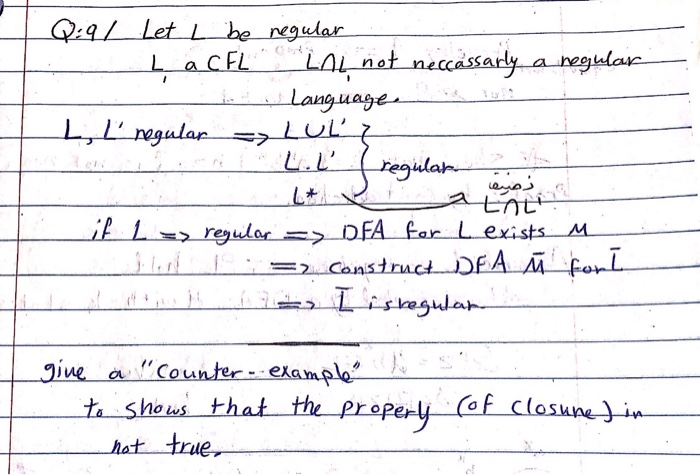 Q:9/ Let L be regular
L₁ a CFL L∩L₁ not neccassarly a regular
Language.
L, L' regular => L∪L'
L.L' } regular.
L*
نضيف
L∩L'
if L => regular => DFA for L exists M
=> construct DFA M̄ for L̄
=> L̄ is regular.
give a "counter-example"
to shows that the properly (of closure) in
not true.